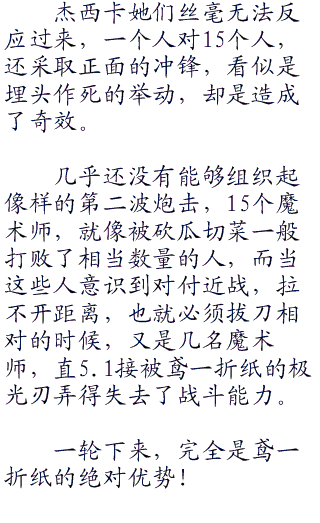 杰西卡她们丝毫无法反
应过来，一个人对15个人，
还采取正面的冲锋，看似是
埋头作死的举动，却是造成
了奇效。
几乎还没有能够组织起
像样的第二波炮击，15个魔
术师，就像被砍瓜切菜一般
打败了相当数量的人，而当
这些人意识到对付近战，拉
不开距离，也就必须拔刀相
对的时候，又是几名魔术
师，直5.1接被鸢一折纸的极
光刃弄得失去了战斗能力。
一轮下来，完全是鸢一
折纸的绝对优势！